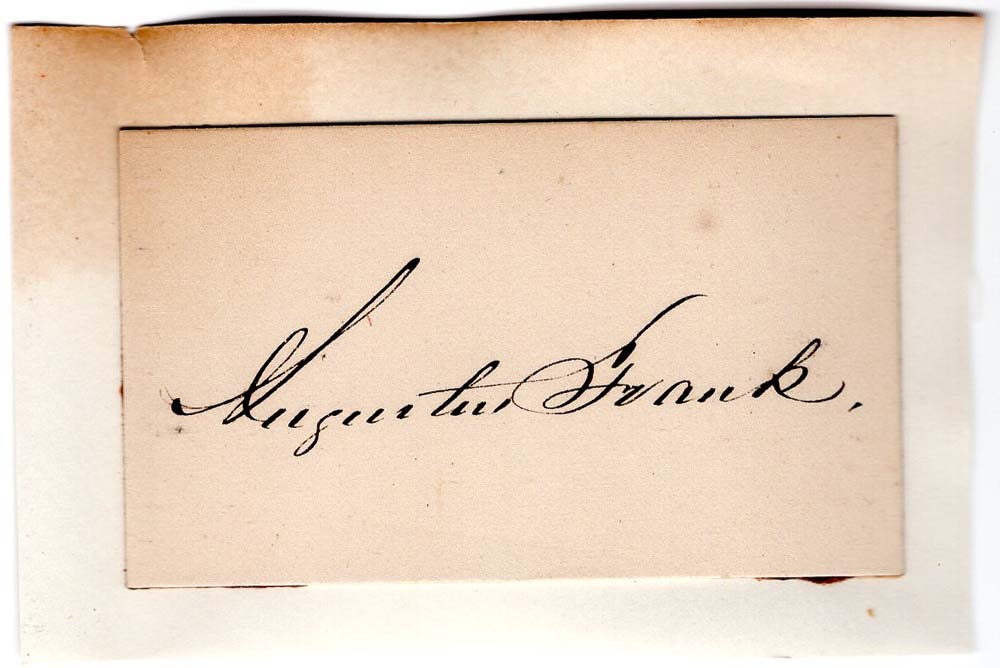 Augustus Frank.